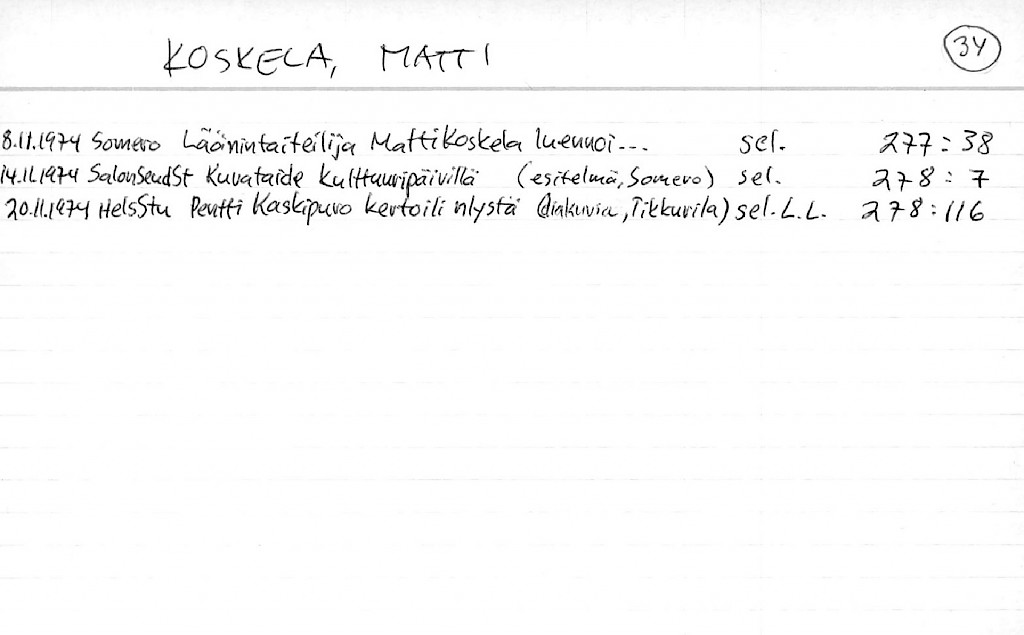 KOSKELA, MATTI 34
8.11.1974 Somero Läänintaiteilija Matti Koskela luennoi... sel. 277:38
14.11.1974 SalonSeudSt Kuvataide kulttuuripäivillä (esitelmä, Somero) sel. 278:7
20.11.1974 HelsStu Pentti Kaskipuro kertoili (diakuvia, Tikkurila) sel. L.L. 278:116